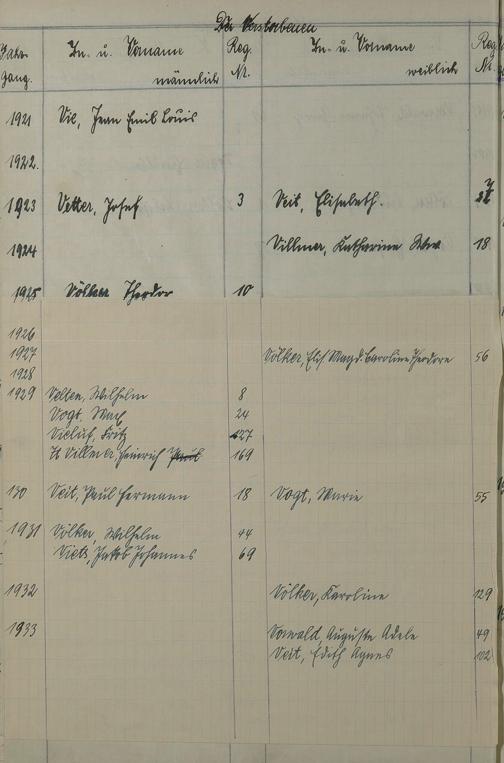 Der Verstorbenen
Jahr- Zn. u. Vorname Reg. Zn. u. Vorname Reg.
gang. männlich Nr. weiblich Nr.
1921 Vie, Jean Emil Louis
1922.
1923 Vetter, Josef 3 Veit, Elisabeth.
1924 Villmer, Katharine Wwe 18
1925 Völker Theodor 10
1926
1927 Völker, Elis. Magd. Caroline Theodore 56
1928
1929 Velten, Wilhelm 8
Vogt, 24
Vieluf, Fritz 27
Villmer, Heinrich 169
130 Veit, Paul Hermann 18 Vogt, Marie 55
1931 Völker, Wilhelm 44
Viets, Jakob Johannes 69
1932 Völker, Karoline 129
1933 Vorwald, Auguste Adele 49
Veit, Edith Agnes 102